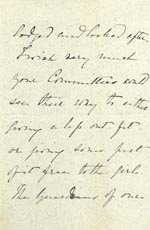 lodged and looked after.
I wish very much
your Committee could
see their way to either
giving a less out fit -
or giving some part
of it free to the girls
The Guardians of one